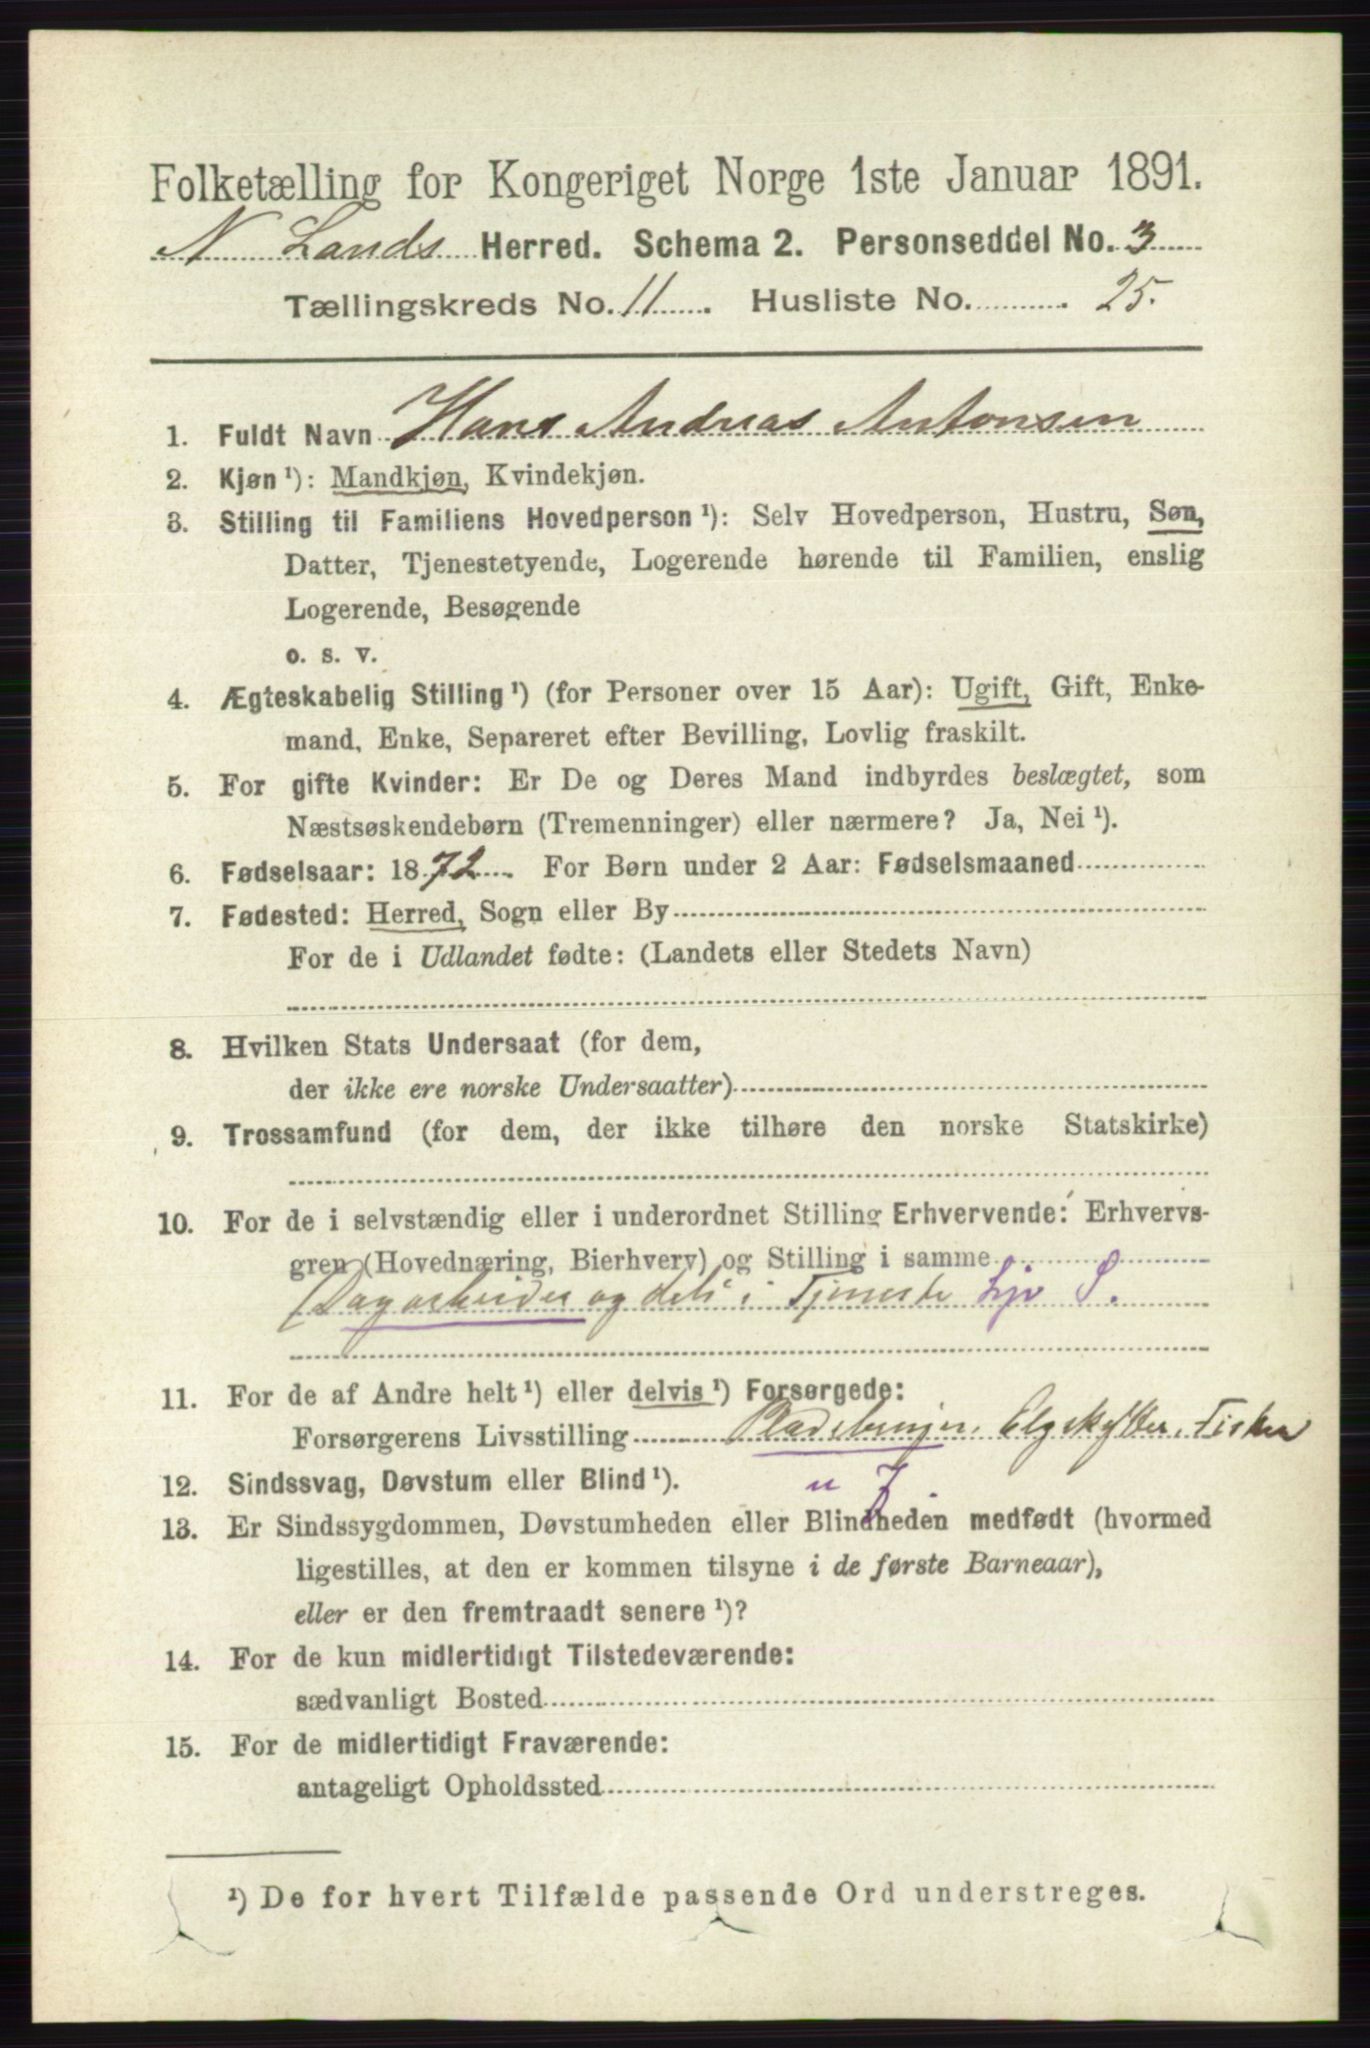 Folketælling for Kongeriget Norge 1ste Januar 1891.
N. Lands Herred. Schema 2. Personseddel No. 3
Tællingskreds No. 11. Husliste No. 25.
1. Fuldt Navn Hans Andreas Antonsen
2. Kjøn ¹): Mandkjøn, Kvindekjøn.
3. Stilling til Familiens Hovedperson ¹): Selv Hovedperson, Hustru, Søn,
Datter, Tjenestetyende, Logerende hørende til Familien, enslig
Logerende, Besøgende
o. s. v.
4. Ægteskabelig Stilling ¹) (for Personer over 15 Aar): Ugift, Gift, Enke-
mand, Enke, Separeret efter Bevilling, Lovlig fraskilt.
5. For gifte Kvinder: Er De og Deres Mand indbyrdes beslægtet, som
Næstsøskendebørn (Tremenninger) eller nærmere? Ja, Nei ¹).
6. Fødselsaar: 1872. For Børn under 2 Aar: Fødselsmaaned
7. Fødested: Herred, Sogn eller By
For de i Udlandet fødte: (Landets eller Stedets Navn)
8. Hvilken Stats Undersaat (for dem,
der ikke ere norske Undersaatter)
9. Trossamfund (for dem, der ikke tilhøre den norske Statskirke)
10. For de i selvstændig eller i underordnet Stilling Erhvervende: Erhvervs-
gren (Hovednæring, Bierhverv) og Stilling i samme
Dagarbeider og dels i Tjeneste S.
11. For de af Andre helt ¹) eller delvis ¹) Forsørgede:
Forsørgerens Livsstilling Pladsbruger, Elgskytter, Fisker
12. Sindssvag, Døvstum eller Blind ¹).
13. Er Sindssygdommen, Døvstumheden eller Blindheden medfødt (hvormed
ligestilles, at den er kommen tilsyne i de første Barneaar),
eller er den fremtraadt senere ¹)?
14. For de kun midlertidigt Tilstedeværende:
sædvanligt Bosted
15. For de midlertidigt Fraværende:
antageligt Opholdssted
¹) De for hvert Tilfælde passende Ord understreges.